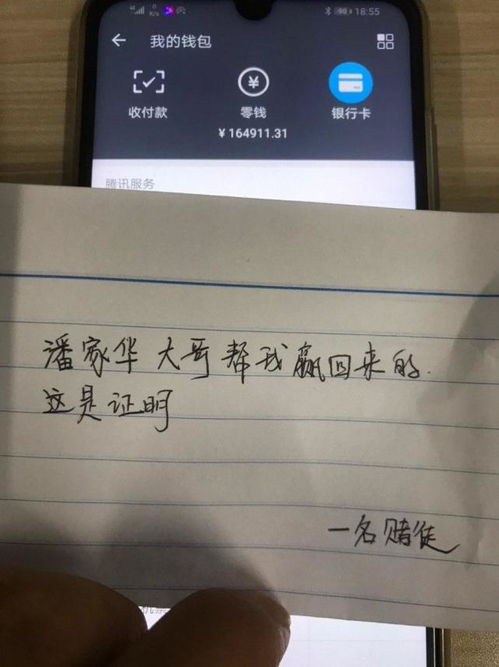 18:55
我的钱包
收付款
零钱
银行卡
¥164911.31
腾讯服务
潘家华大哥帮我赢回来的.
这是证明
一名赌徒